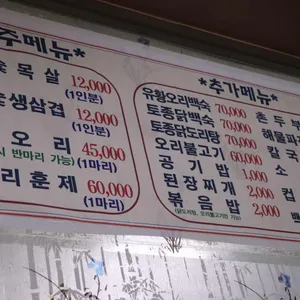 주메뉴
숯목살 12,000
(1인분)
숯생삼겹 12,000
(1인분)
오리 45,000
시 반마리 가능) (1마리)
리훈제 60,000
(1마리)
*추가메뉴*
유황오리백숙 70,000 촌두부
토종닭백숙 70,000 해물파
토종닭도리탕 70,000 칼국
오리불고기 60,000 소
공기밥 1,000 음
된장찌개 2,000 컵
볶음밥 2,000 백
(닭도리탕, 오리불고기만 가능)